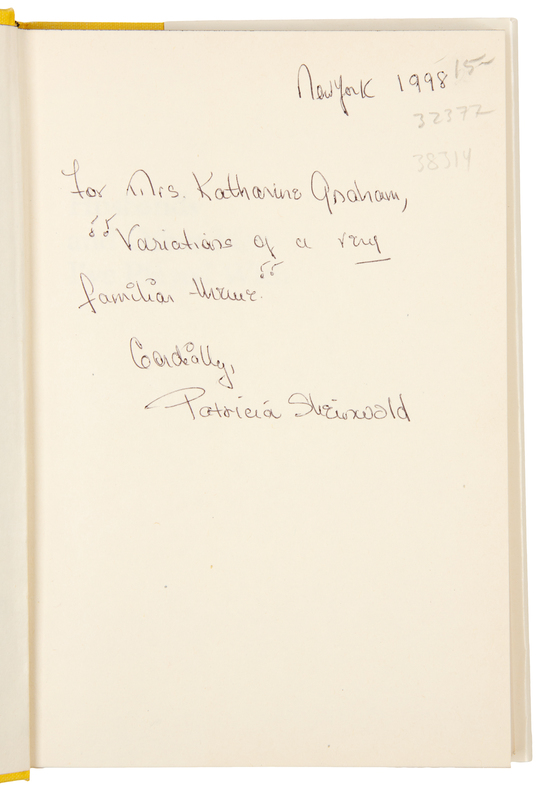 New York 1998 15-
32372
38314
For Mrs. Katharine Graham,
"Variations of a very
familiar theme."
Cordially,
Patricia Steinwald